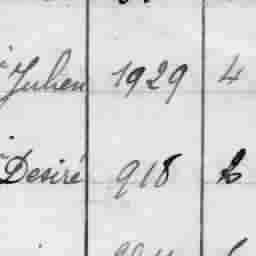 Julien 1929 4
Desiré 918